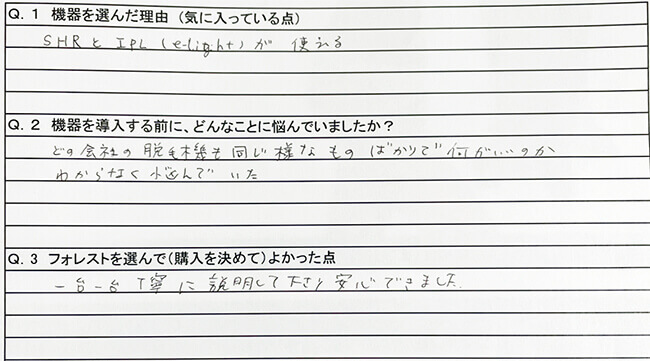 Q. 1 機器を選んだ理由（気に入っている点）
SHRと IPL (e-light) が 使える
Q. 2 機器を導入する前に、どんなことに悩んでいましたか？
どの会社の脱毛機も同じ様なものばかりで何がいいのか
わからなく悩んでいた
Q. 3 フォレストを選んで（購入を決めて）よかった点
一台一台丁寧に説明して下さり安心できました。